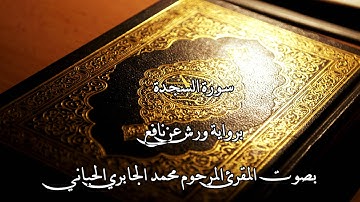 سورة السجدة
برواية ورش عن نافع
بصوت المقرئ المرحوم محمد الجابري الحياني